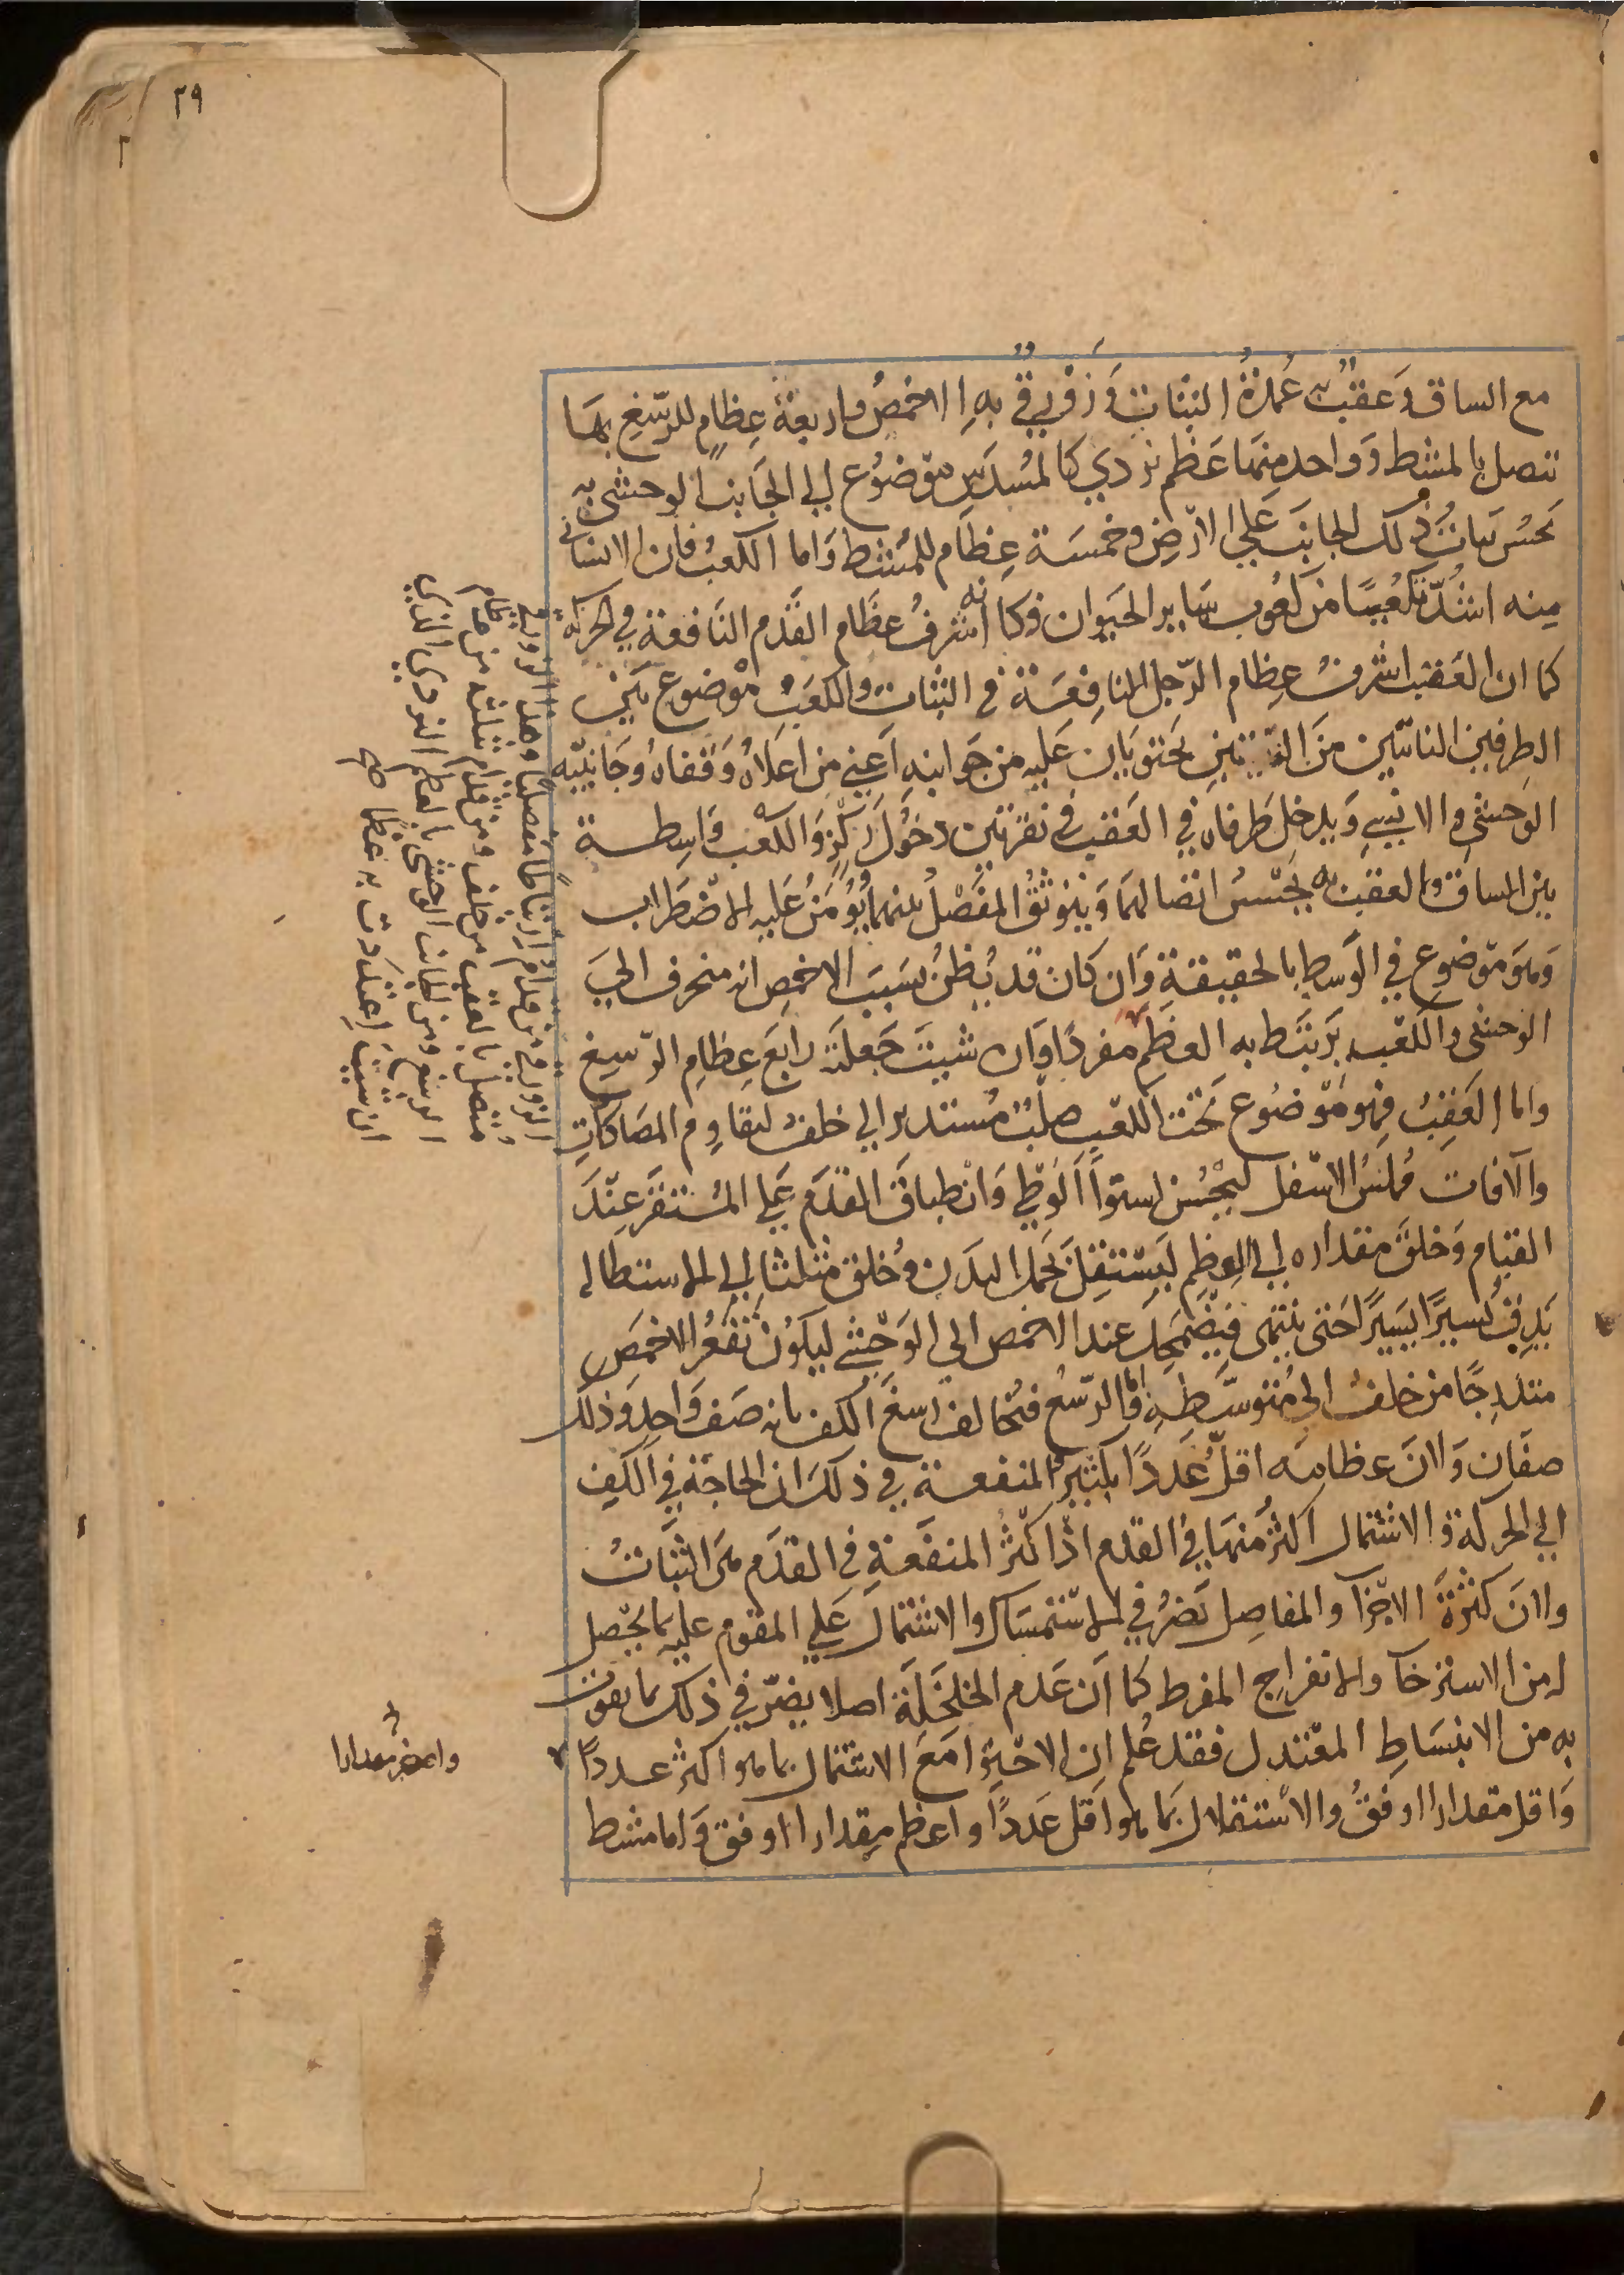 ٢٩
مع الساق وعقب به عمدة الثبات وزورقي به الاخمص واربعة عظام للرسغ بها
تتصل بالمشط وواحد منها عظم نردي كالمسدس موضوع الي الجانب الوحشي به
يحسن ثبات ذلك الجانب علي الارض وخمسة عظام للمشط واما الكعب فان الانساني
منه اشد تكعيبا من كعوب ساير الحيوان وكانه اشرف عظام القدم النافعة في الحركة
كما ان العقب اشرف عظام الرجل النافعة في الثبات والكعب موضوع بين
الطرفين الناتيين من القصبتين يحتويان عليه من جوانبه اعني من اعلاه وقفاه وجانبيه
الوحشي والانسي ويدخل طرفاه في العقب في نقرتين دخول ركز والكعب واسطة
بين الساق والعقب به يحسن اتصالهما ويتوثق المفصل بينهما ويؤمن عليه الاضطراب
وهو موضوع في الوسط بالحقيقة وان كان قد يظن بسبب الاخمص انه منحرف الي
الوحشي والكعب يرتبط به العظم مفردا وان شيت جعلته رابع عظام الرسغ
واما العقب فهو موضوع تحت الكعب صلب مستدير الي خلف ليقاوم المصاكات
والافات مملس الاسفل ليحسن استوا الوطي وانطباق القدم علي المستقر عند
القيام وخلق مقداره الي العظم ليستقل بحمل البدن وخلق مثلثا الي الاستطاله
يدق يسيرا يسيرا حتي ينتهي فيضمحل عند الاخمص الي الوحشي ليكون تقعر الاخمص
متدرجا من خلف الي متوسطه واما الرسغ فيخالف رسغ الكف بانه صف واحد وذلك
صفان ولان عظامه اقل عددا بكثير والمنفعة في ذلك ان الحاجة في الكف
الي الحركة والاشتمال اكثر منها في القدم اذ اكثر المنفعة في القدم هي الثبات
ولان كثرة الاجزا والمفاصل تضر في الاستمساك والاشتمال علي المقوم عليه بما يحصل
له من الاسترخا والانفراج المفرط كما ان عدم الخلخلة اصلا يضر في ذلك بما يفوت
به من الانبساط المعتدل فقد علم ان الاحتوا مع الاشتمال بما هو اكثر عددا
واقل مقدارا اوفق والاستقلال بما هو اقل عددا واعظم مقدارا اوفق واما مشط
الزورقي من قدام ارتباطا مفصليا وهذا الزورقي
متصل بالعقب من خلف ومن قدام بثلثة من عظام
الرسغ ومن الجانب الوحشي بالعظم النردي الذي
ان شيت اعتددت به عظما
واصغر مقدارا